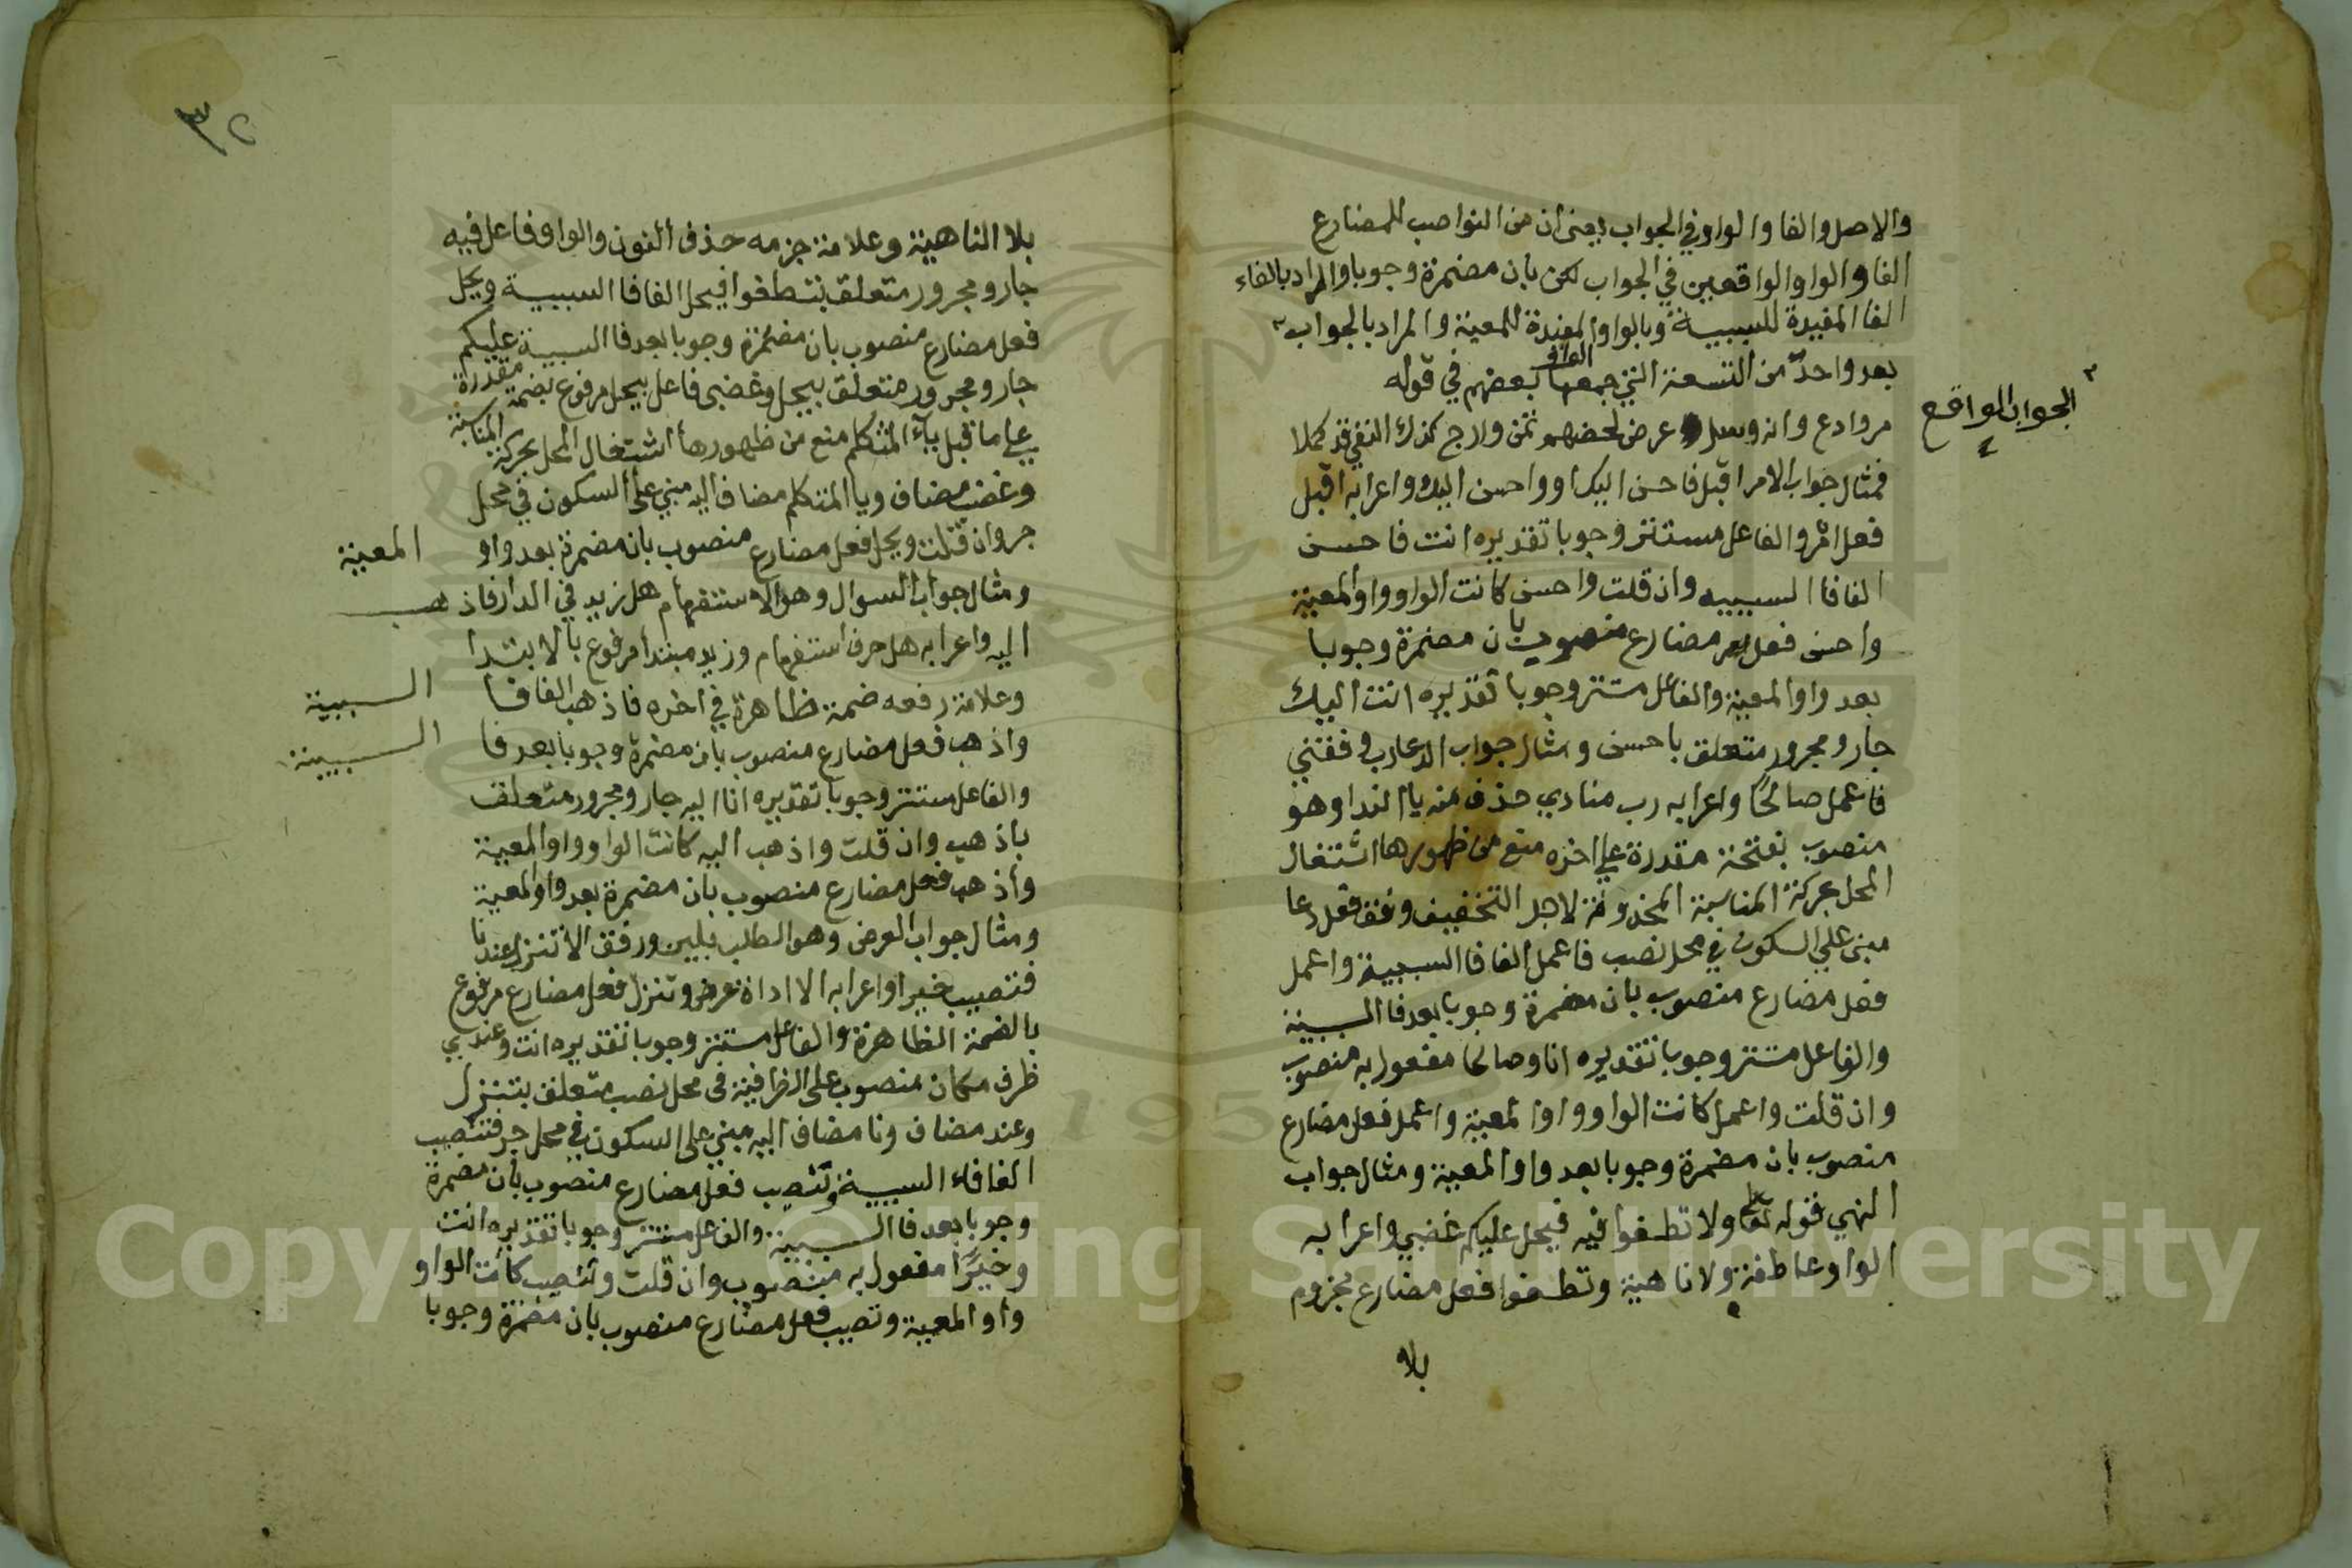 والاصل والفا والواو في الجواب يعني ان من النواصب للمضارع
الفا والواو الواقعين في الجواب لكن بان مضمرة وجوبا والمراد بالفاء
الفا المفيدة للسببية وبالواو المفيدة للمعية والمراد بالجواب
الجواب الواقع
بعد واحد من التسعة التي جمعها بعضهم في قوله
مر وادع وانه وسل عرض لحضهم تمن وارج كذاك النفي قد كملا
فمثال جواب الامر اقبل فاحسن اليك او واحسن اليك واعرابه اقبل
فعل امر والفاعل مستتر وجوبا تقديره انت فاحسن
الفا فا السببيه وان قلت واحسن كانت الواو واو المعية
واحسن فعل مضارع منصوب بان مضمرة وجوبا
بعد واو المعية والفاعل مستتر وجوبا تقديره انت اليك
جار ومجرور متعلق باحسن ومثال جواب الدعا رب وفقني
فاعمل صالحًا واعرابه رب منادي حذف منه يا الندا وهو
منصوب بفتحة مقدرة علي اخره منع من ظهورها اشتغال
المحل بحركة المناسبة المحذوفة لاجل التخفيف وفق فعل دعا
مبني علي السكون في محل نصب فاعمل الفا فا السببية واعمل
فعل مضارع منصوب بان مضمرة وجوبا بعد فا السببية
والفاعل مستتر وجوبا تقديره انا وصالحا مفعول به منصوب
وان قلت واعمل كانت الواو واو المعية واعمل فعل مضارع
منصوب بان مضمرة وجوبا بعد واو المعية ومثال جواب
النهي قوله تعالى ولا تطغوا فيه فيحل عليكم غضبي واعرابه
الواو عاطفة ولا ناهية وتطغوا فعل مضارع مجزوم
بلا
٣٢
بلا الناهية وعلامة جزمه حذف النون والواو فاعل فيه
جار ومجرور متعلق بتطغوا فيحل الفا فا السببية ويحل
فعل مضارع منصوب بان مضمرة وجوبا بعد فا السببية عليكم
جار ومجرور متعلق بيحل وغضبي فاعل بيحل مرفوع بضمة مقدرة
علي ما قبل ياء المتكلم منع من ظهورها اشتغال المحل بحركة المناسبة
وغضب مضاف ويا المتكلم مضاف اليه مبني علي السكون في محل
جر وان قلت ويحل فعل مضارع منصوب بان مضمرة بعد واو المعية
ومثال جواب السوال وهو الاستفهام هل زيد في الدار فاذهب
اليه واعرابه هل حرف استفهام وزيد مبتدا مرفوع بالابتدا
وعلامة رفعه ضمة ظاهرة في اخره فاذهب الفا فا السببية
واذهب فعل مضارع منصوب بان مضمرة وجوبا بعد فا السببية
والفاعل مستتر وجوبا تقديره انا اليه جار ومجرور متعلق
باذهب وان قلت واذهب اليه كانت الواو واو المعية
واذهب فعل مضارع منصوب بان مضمرة بعد واو المعية
ومثال جواب العرض وهو الطلب بلين ورفق الا تنزل عندنا
فتصيب خيرا واعرابه الا اداة عرض وتنزل فعل مضارع مرفوع
بالضمة الظاهرة والفاعل مستتر وجوبا تقديره انت وعندي
ظرف مكان منصوب على الظرافية في محل نصب متعلق بتنزل
وعند مضاف ونا مضاف اليه مبني على السكون في محل جر فتصيب
الفا فاء السببية وتصيب فعل مضارع منصوب بان مضمرة
وجوبا بعد فا السببية والفاعل مستتر وجوبا تقديره انت
وخيرًا مفعول به منصوب وان قلت وتصيب كانت الواو
واو المعية وتصيب فعل مضارع منصوب بان مضمرة وجوبا
Copyright © King Saud University